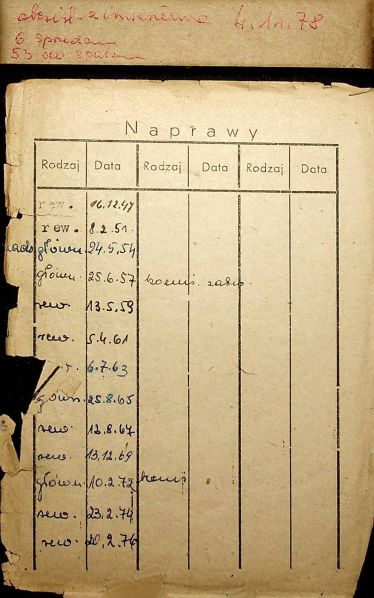 4.11.78
6
53 do
Naprawy
Rodzaj Data Rodzaj Data Rodzaj Data
rew. 16.12.47
rew. 8.2.51.
główn. 24.5.54
główn. 25.6.57
rew. 13.5.59
rew. 5.4.61
6.7.63
główn. 25.8.65
rew. 12.8.67
rew. 13.12.69
główn. 10.2.72
rew. 23.2.74
rew. 20.2.76